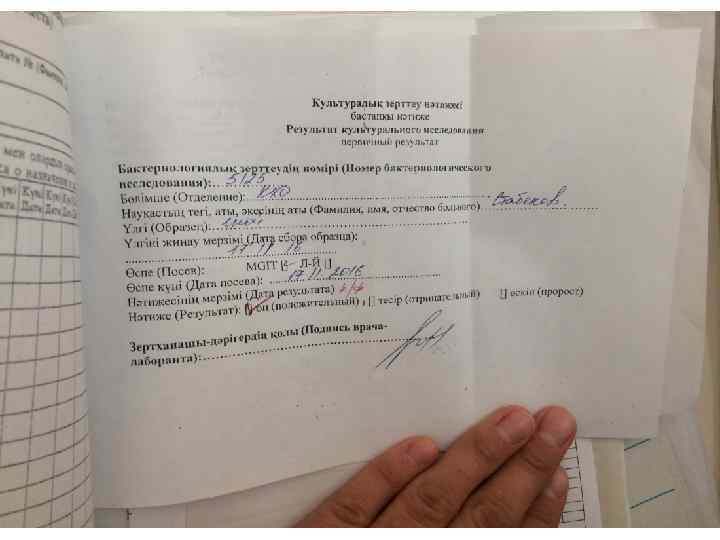 мен олардың
я о назначении
Күні Күні
Дата Дата Да
Культуралық зерттеу нәтижесі
бастапқы нәтиже
Результат культурального исследования
первичный результат
Бактериологиялық зерттеудің нөмірі (Номер бактериологического
исследования): 5125
Бөлімше (Отделение): ККО
Науқастың тегі, аты, әкесінің аты (Фамилия, имя, отчество больного)
Үлгі (Образец):
Үлгіні жинау мерзімі (Дата сбора образца):
17 11 16
Өспе (Посев): MGIT [ Л-Й []
Өспе күні (Дата посева): 17.11.2016
Нәтижесінің мерзімі (Дата результата)
Нәтиже (Результат): оң (положительный), [] теріс (отрицательный) [] өскін (пророст)
Зертханашы-дәрігердің қолы (Подпись врача-
лаборанта):